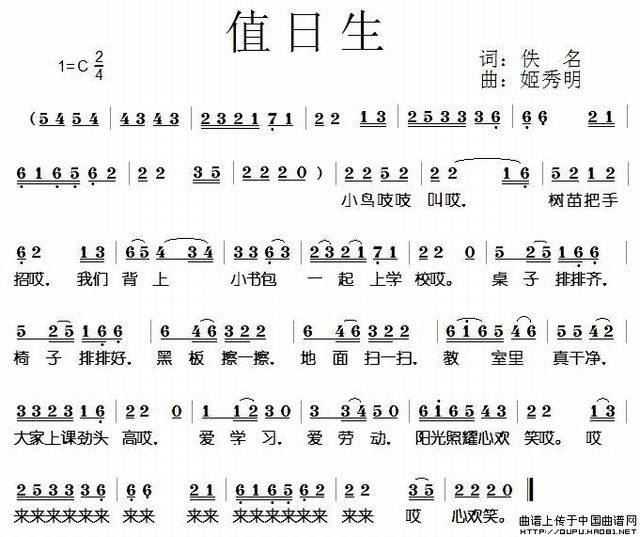 值日生
1=C 2/4
词：佚 名
曲：姬秀明
(5454 | 4343 | 232171 | 22 13 | 2533336 | 66 21 |
616562 | 22 35 | 2220) | 2252 | 22 16 | 5212 |
小鸟吱吱 叫哎， 树苗把手
62 13 | 65 4 34 | 3363 | 232171 | 22 0 | 5 25 166 |
招哎， 我们 背上 小书包 一起上学 校哎。 桌子 排排齐，
5 25 166 | 6 46 322 | 6 46 322 | 6165 46 | 5 32 122 |
椅子 排排好， 黑板 擦一擦， 地面 扫一扫， 教室里 真干净，
332316 | 22 0 | 1 12 30 | 3 34 50 | 616543 | 22 13 |
大家上课劲头 高哎， 爱学习， 爱劳动， 阳光照耀心欢 笑哎。 哎
2533336 | 66 22 | 616562 | 22 35 | 2220 ‖
来来来来来来 来来 来来 来来来来来来 来来 哎 心欢笑。
曲谱上传于中国曲谱网
HTTP://QUPU.HAO81.NET